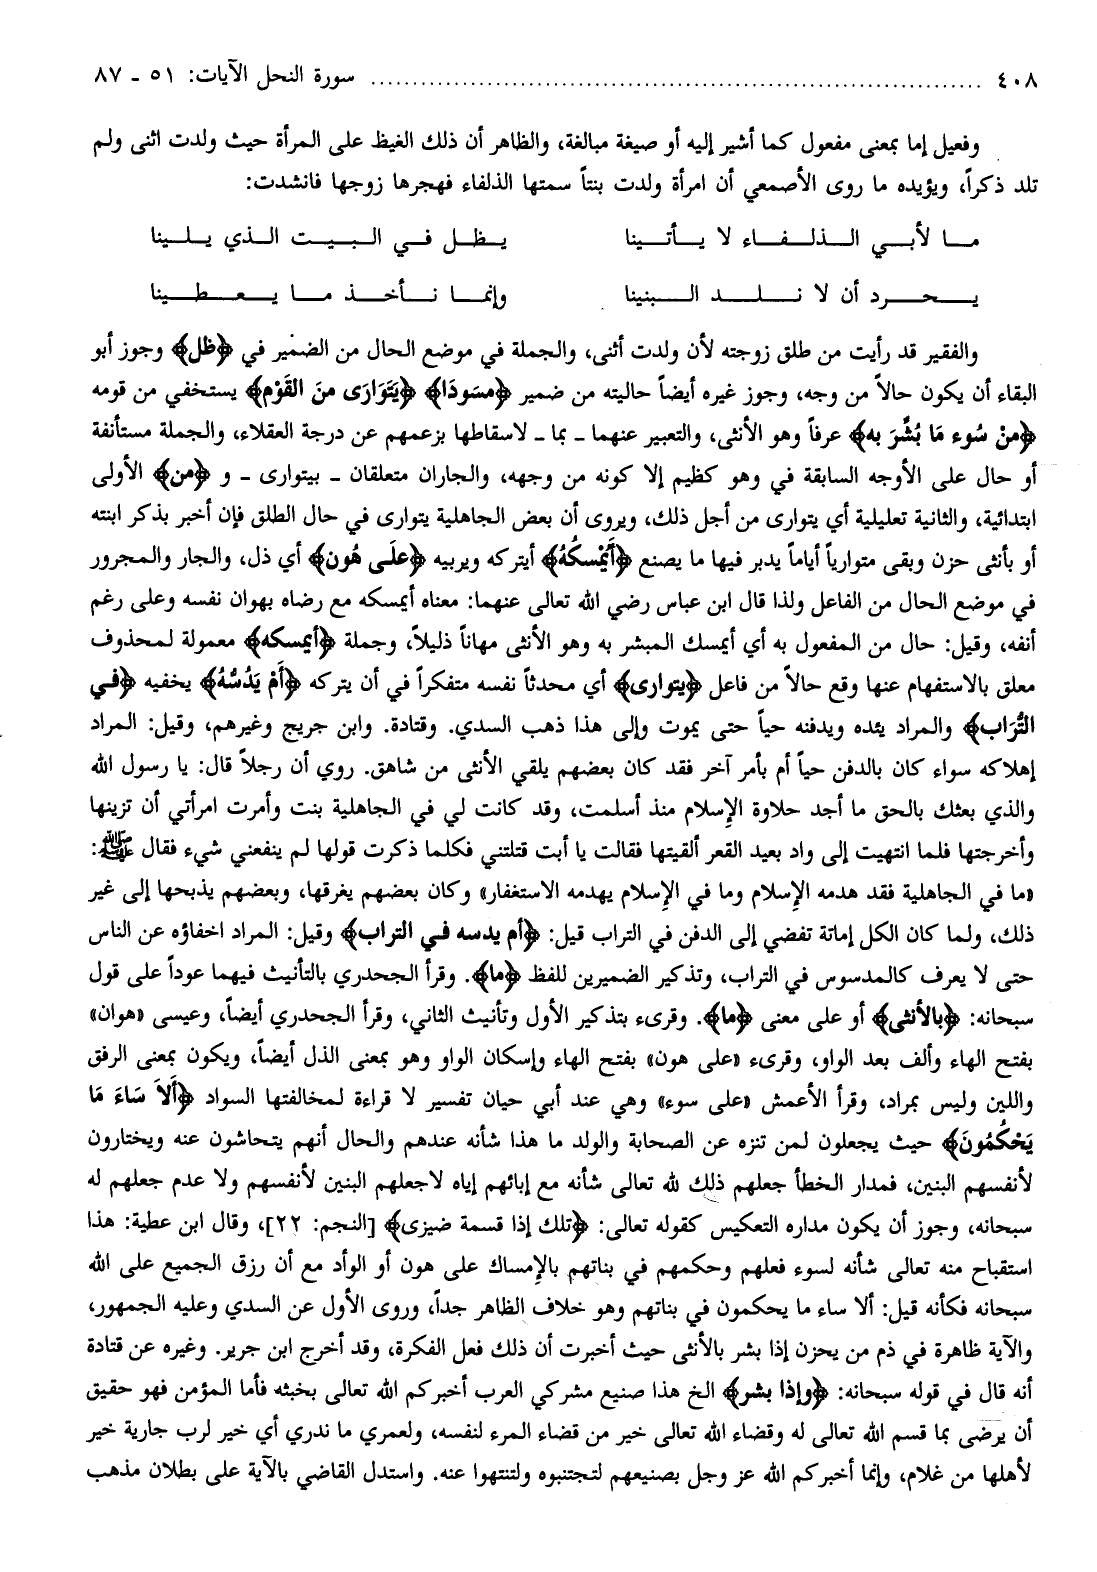 ٤٠٨ ........ سورة النحل الآيات: ٥١ - ٨٧
وفعيل إما بمعنى مفعول كما أشير إليه أو صيغة مبالغة، والظاهر أن ذلك الغيظ على المرأة حيث ولدت اثنى ولم
تلد ذكراً، ويؤيده ما روى الأصمعي أن امرأة ولدت بنتاً سمتها الذلفاء فهجرها زوجها فانشدت:
ما لأبي الذلفاء لا يأتينا يظل في البيت الذي يلينا
يحرد أن لا نلد البنينا وإنما نأخذ ما يعطينا
والفقير قد رأيت من طلق زوجته لأن ولدت أثنى، والجملة في موضع الحال من الضمير في ﴿ظل﴾ وجوز أبو
البقاء أن يكون حالاً من وجه، وجوز غيره أيضاً حاليته من ضمير ﴿مسودًا﴾ ﴿يَتَوَارَى منَ القَوْم﴾ يستخفي من قومه
﴿منْ سُوء مَا بُشِّرَ به﴾ عرفاً وهو الأنثى، والتعبير عنهما ـ بما ـ لاسقاطها بزعمهم عن درجة العقلاء، والجملة مستأنفة
أو حال على الأوجه السابقة في وهو كظيم إلا كونه من وجهه، والجاران متعلقان ـ بيتوارى ـ و ﴿من﴾ الأولى
ابتدائية، والثانية تعليلية أي يتوارى من أجل ذلك، ويروى أن بعض الجاهلية يتوارى في حال الطلق فإن أخبر بذكر ابنته
أو بأنثى حزن وبقى متوارياً أياماً يدبر فيها ما يصنع ﴿أَيُمْسكُهُ﴾ أيتركه ويربيه ﴿عَلَى هُون﴾ أي ذل، والجار والمجرور
في موضع الحال من الفاعل ولذا قال ابن عباس رضي الله تعالى عنهما: معناه أيمسكه مع رضاه بهوان نفسه وعلى رغم
أنفه، وقيل: حال من المفعول به أي أيمسك المبشر به وهو الأنثى مهاناً ذليلاً، وجملة ﴿أيمسكه﴾ معمولة لمحذوف
معلق بالاستفهام عنها وقع حالاً من فاعل ﴿يتوارى﴾ أي محدثاً نفسه متفكراً في أن يتركه ﴿أَمْ يَدُسُّهُ﴾ يخفيه ﴿في
التُّرَاب﴾ والمراد يئده ويدفنه حياً حتى يموت وإلى هذا ذهب السدي. وقتادة. وابن جريج وغيرهم، وقيل: المراد
إهلاكه سواء كان بالدفن حياً أم بأمر آخر فقد كان بعضهم يلقي الأنثى من شاهق. روي أن رجلاً قال: يا رسول الله
والذي بعثك بالحق ما أجد حلاوة الإسلام منذ أسلمت، وقد كانت لي في الجاهلية بنت وأمرت امرأتي أن تزينها
وأخرجتها فلما انتهيت إلى واد بعيد القعر ألقيتها فقالت يا أبت قتلتني فكلما ذكرت قولها لم ينفعني شيء فقال ﷺ:
«ما في الجاهلية فقد هدمه الإسلام وما في الإسلام يهدمه الاستغفار» وكان بعضهم يغرقها، وبعضهم يذبحها إلى غير
ذلك، ولما كان الكل إماتة تفضي إلى الدفن في التراب قيل: ﴿أم يدسه في التراب﴾ وقيل: المراد اخفاؤه عن الناس
حتى لا يعرف كالمدسوس في التراب، وتذكير الضميرين للفظ ﴿ما﴾. وقرأ الجحدري بالتأنيث فيهما عوداً على قول
سبحانه: ﴿بالأنثى﴾ أو على معنى ﴿ما﴾. وقرىء بتذكير الأول وتأنيث الثاني، وقرأ الجحدري أيضاً، وعيسى «هوان»
بفتح الهاء وألف بعد الواو، وقرىء «على هون» بفتح الهاء وإسكان الواو وهو بمعنى الذل أيضاً، ويكون بمعنى الرفق
واللين وليس بمراد، وقرأ الأعمش «على سوء» وهي عند أبي حيان تفسير لا قراءة لمخالفتها السواد ﴿أَلاَ سَاءَ مَا
يَحْكُمُونَ﴾ حيث يجعلون لمن تنزه عن الصحابة والولد ما هذا شأنه عندهم والحال أنهم يتحاشون عنه ويختارون
لأنفسهم البنين، فمدار الخطأ جعلهم ذلك لله تعالى شأنه مع إبائهم إياه لاجعلهم البنين لأنفسهم ولا عدم جعلهم له
سبحانه، وجوز أن يكون مداره التعكيس كقوله تعالى: ﴿تلك إذا قسمة ضيزى﴾ [النجم: ٢٢]، وقال ابن عطية: هذا
استقباح منه تعالى شأنه لسوء فعلهم وحكمهم في بناتهم بالإمساك على هون أو الوأد مع أن رزق الجميع على الله
سبحانه فكأنه قيل: ألا ساء ما يحكمون في بناتهم وهو خلاف الظاهر جداً، وروى الأول عن السدي وعليه الجمهور،
والآية ظاهرة في ذم من يحزن إذا بشر بالأنثى حيث أخبرت أن ذلك فعل الفكرة، وقد أخرج ابن جرير. وغيره عن قتادة
أنه قال في قوله سبحانه: ﴿وإذا بشر﴾ الخ هذا صنيع مشركي العرب أخبركم الله تعالى بخبثه فأما المؤمن فهو حقيق
أن يرضى بما قسم الله تعالى له وقضاء الله تعالى خير من قضاء المرء لنفسه، ولعمري ما ندري أي خير لرب جارية خير
لأهلها من غلام، وإنما أخبركم الله عز وجل بصنيعهم لتجتنبوه ولتنتهوا عنه. واستدل القاضي بالآية على بطلان مذهب